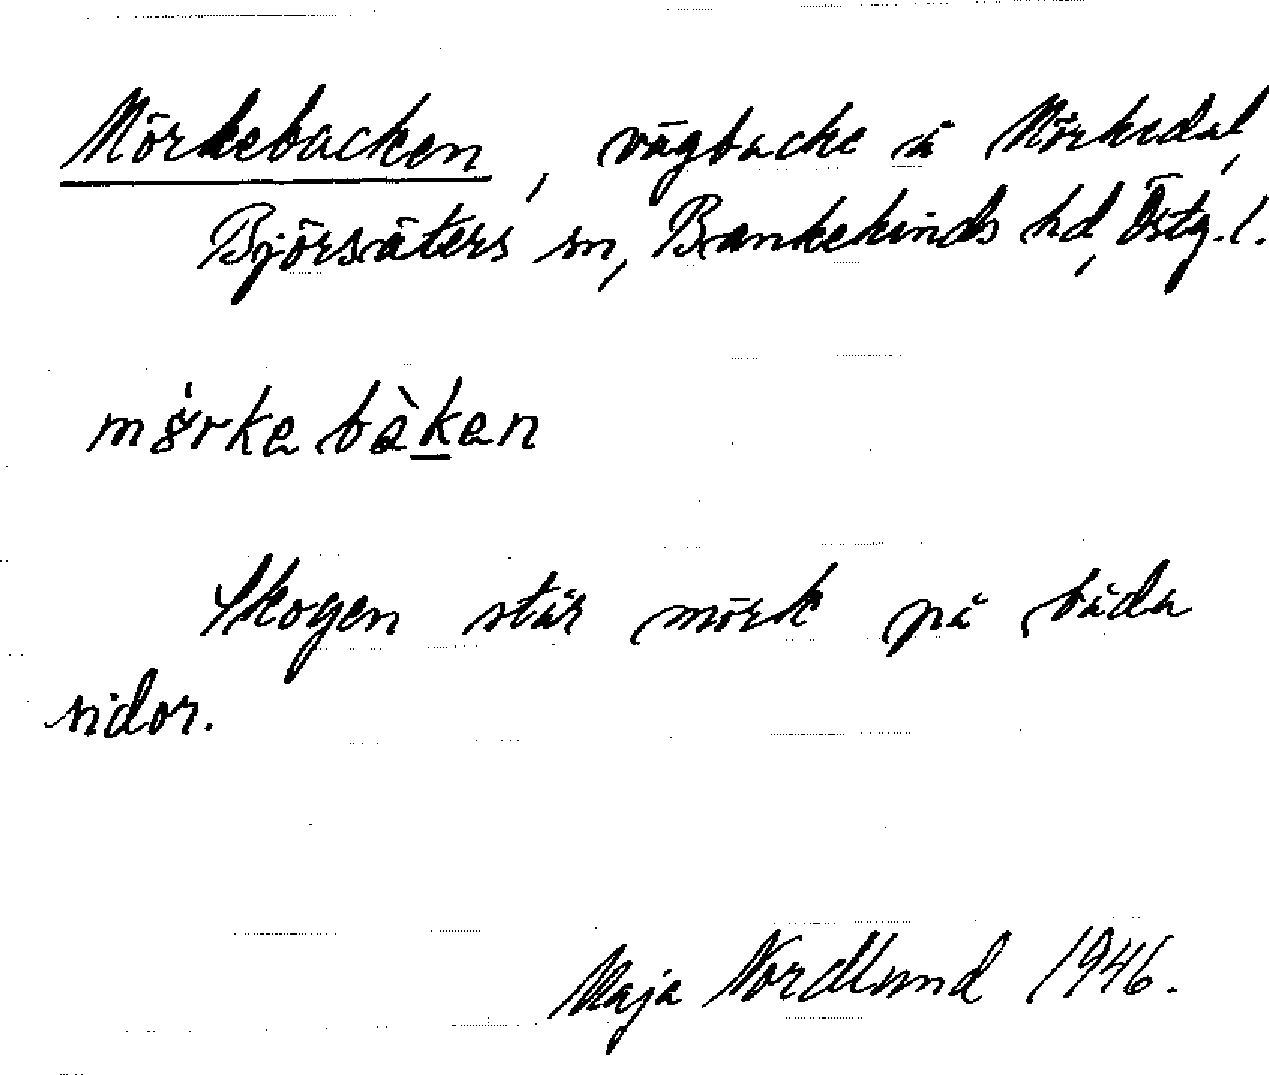 Mörkebacken, vägbacke å Mörkedal,
Björsäters sn, Bankekinds hd, Östg. l.
mörkebàken
Skogen står mörk på båda
sidor.
Maja Nordlund 1946.